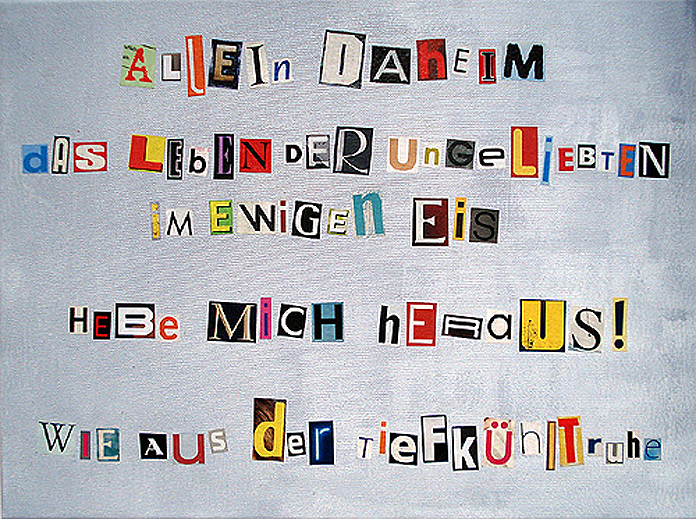 ALLEIn DAHEIM
dAS LEbEN DER UnGeLiEBTEN
iM EWiGEn EiS
HEBe MiCH hERaUS!
WIE AUS der TiEFKÜhlTruhe